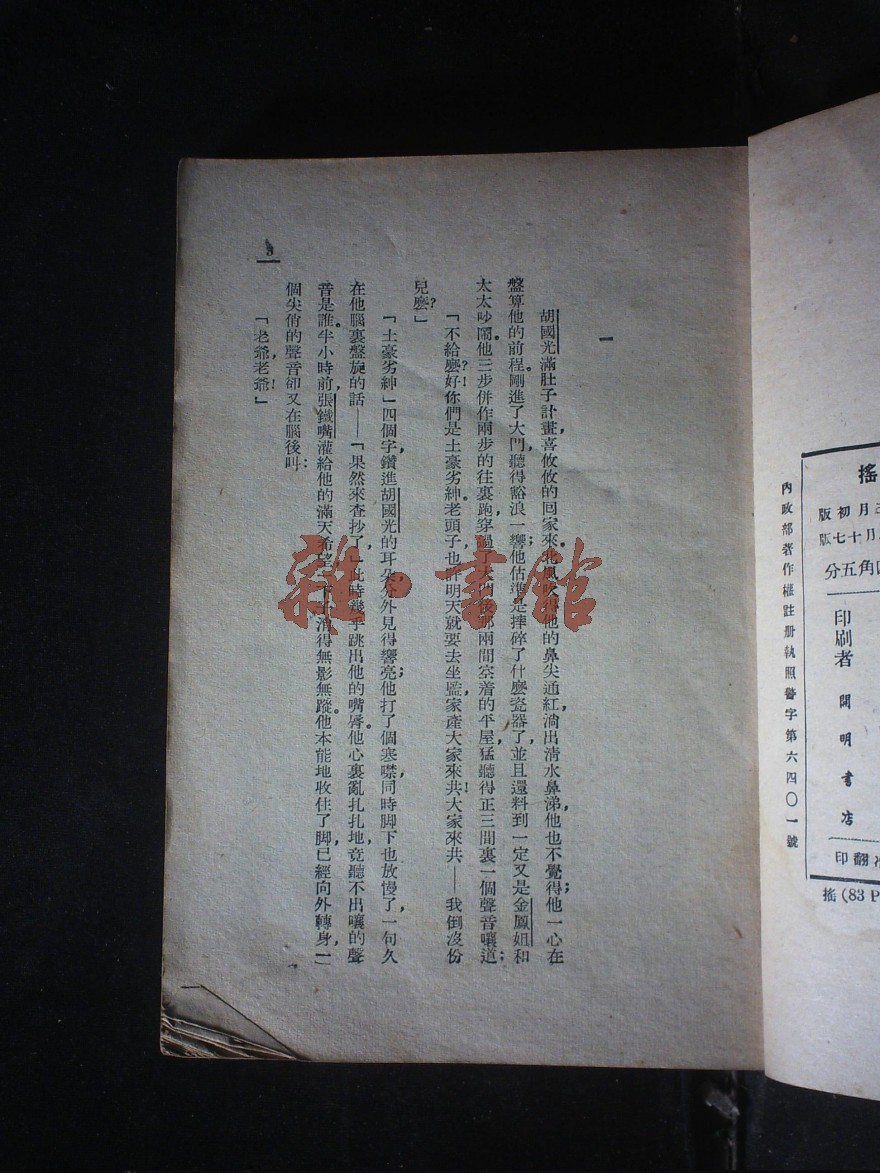 搖
月初版
月十七版
角五分
印刷者　開明書店
翻印
搖(83 P
內政部著作權註册執照警字第六四〇一號
一
胡國光滿肚子計畫，喜攸攸的回家來。北風吹得他的鼻尖通紅，淌出清水鼻涕，他也不覺得；他一心在
盤算他的前程。剛進了大門，聽得豁浪一響；他估準是摔碎了什麼瓷器了，並且還料到一定又是金鳳姐和
太太吵鬧。他三步併作兩步的往裏跑，穿過了大門後那兩間空着的平屋，猛聽得正三間裏一個聲音嚷道；
「不給麼？好！你們是土豪劣紳。老頭子也許明天就要去坐監，家產大家來共！大家來共——我倒沒份
兒麼？」
「土豪劣紳」四個字，鑽進胡國光的耳朵，分外見得響亮；他打了個寒噤，同時脚下也放慢了，一句久
在他腦裏盤旋的話——「果然來查抄了」，此時幾乎跳出他的嘴脣。他心裏亂扎扎地，竟聽不出嚷的聲
音是誰。半小時前，張鐵嘴灌給他的滿天希望，一下子消得無影無蹤。他本能地收住了脚，已經向外轉身，一
個尖俏的聲音卻又在腦後叫：
「老爺，老爺！」
3
雜·書館